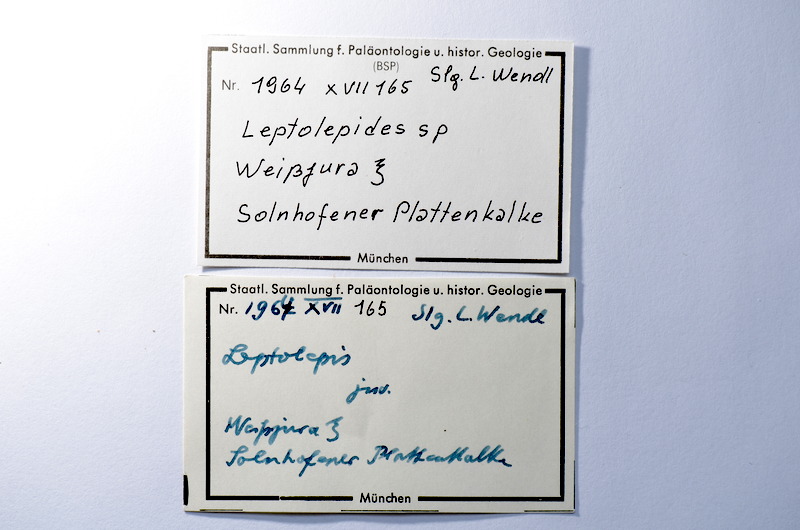 Staatl. Sammlung f. Paläontologie u. histor. Geologie
(BSP)
Nr. 1964 XVII 165 Slg. L. Wendl
Leptolepides sp
Weißjura ξ
Solnhofener Plattenkalke
München
Staatl. Sammlung f. Paläontologie u. histor. Geologie
Nr. 1964 XVII 165 Slg. L. Wendl
Leptolepis
juv.
Weißjura ξ
Solnhofener Plattenkalke
München